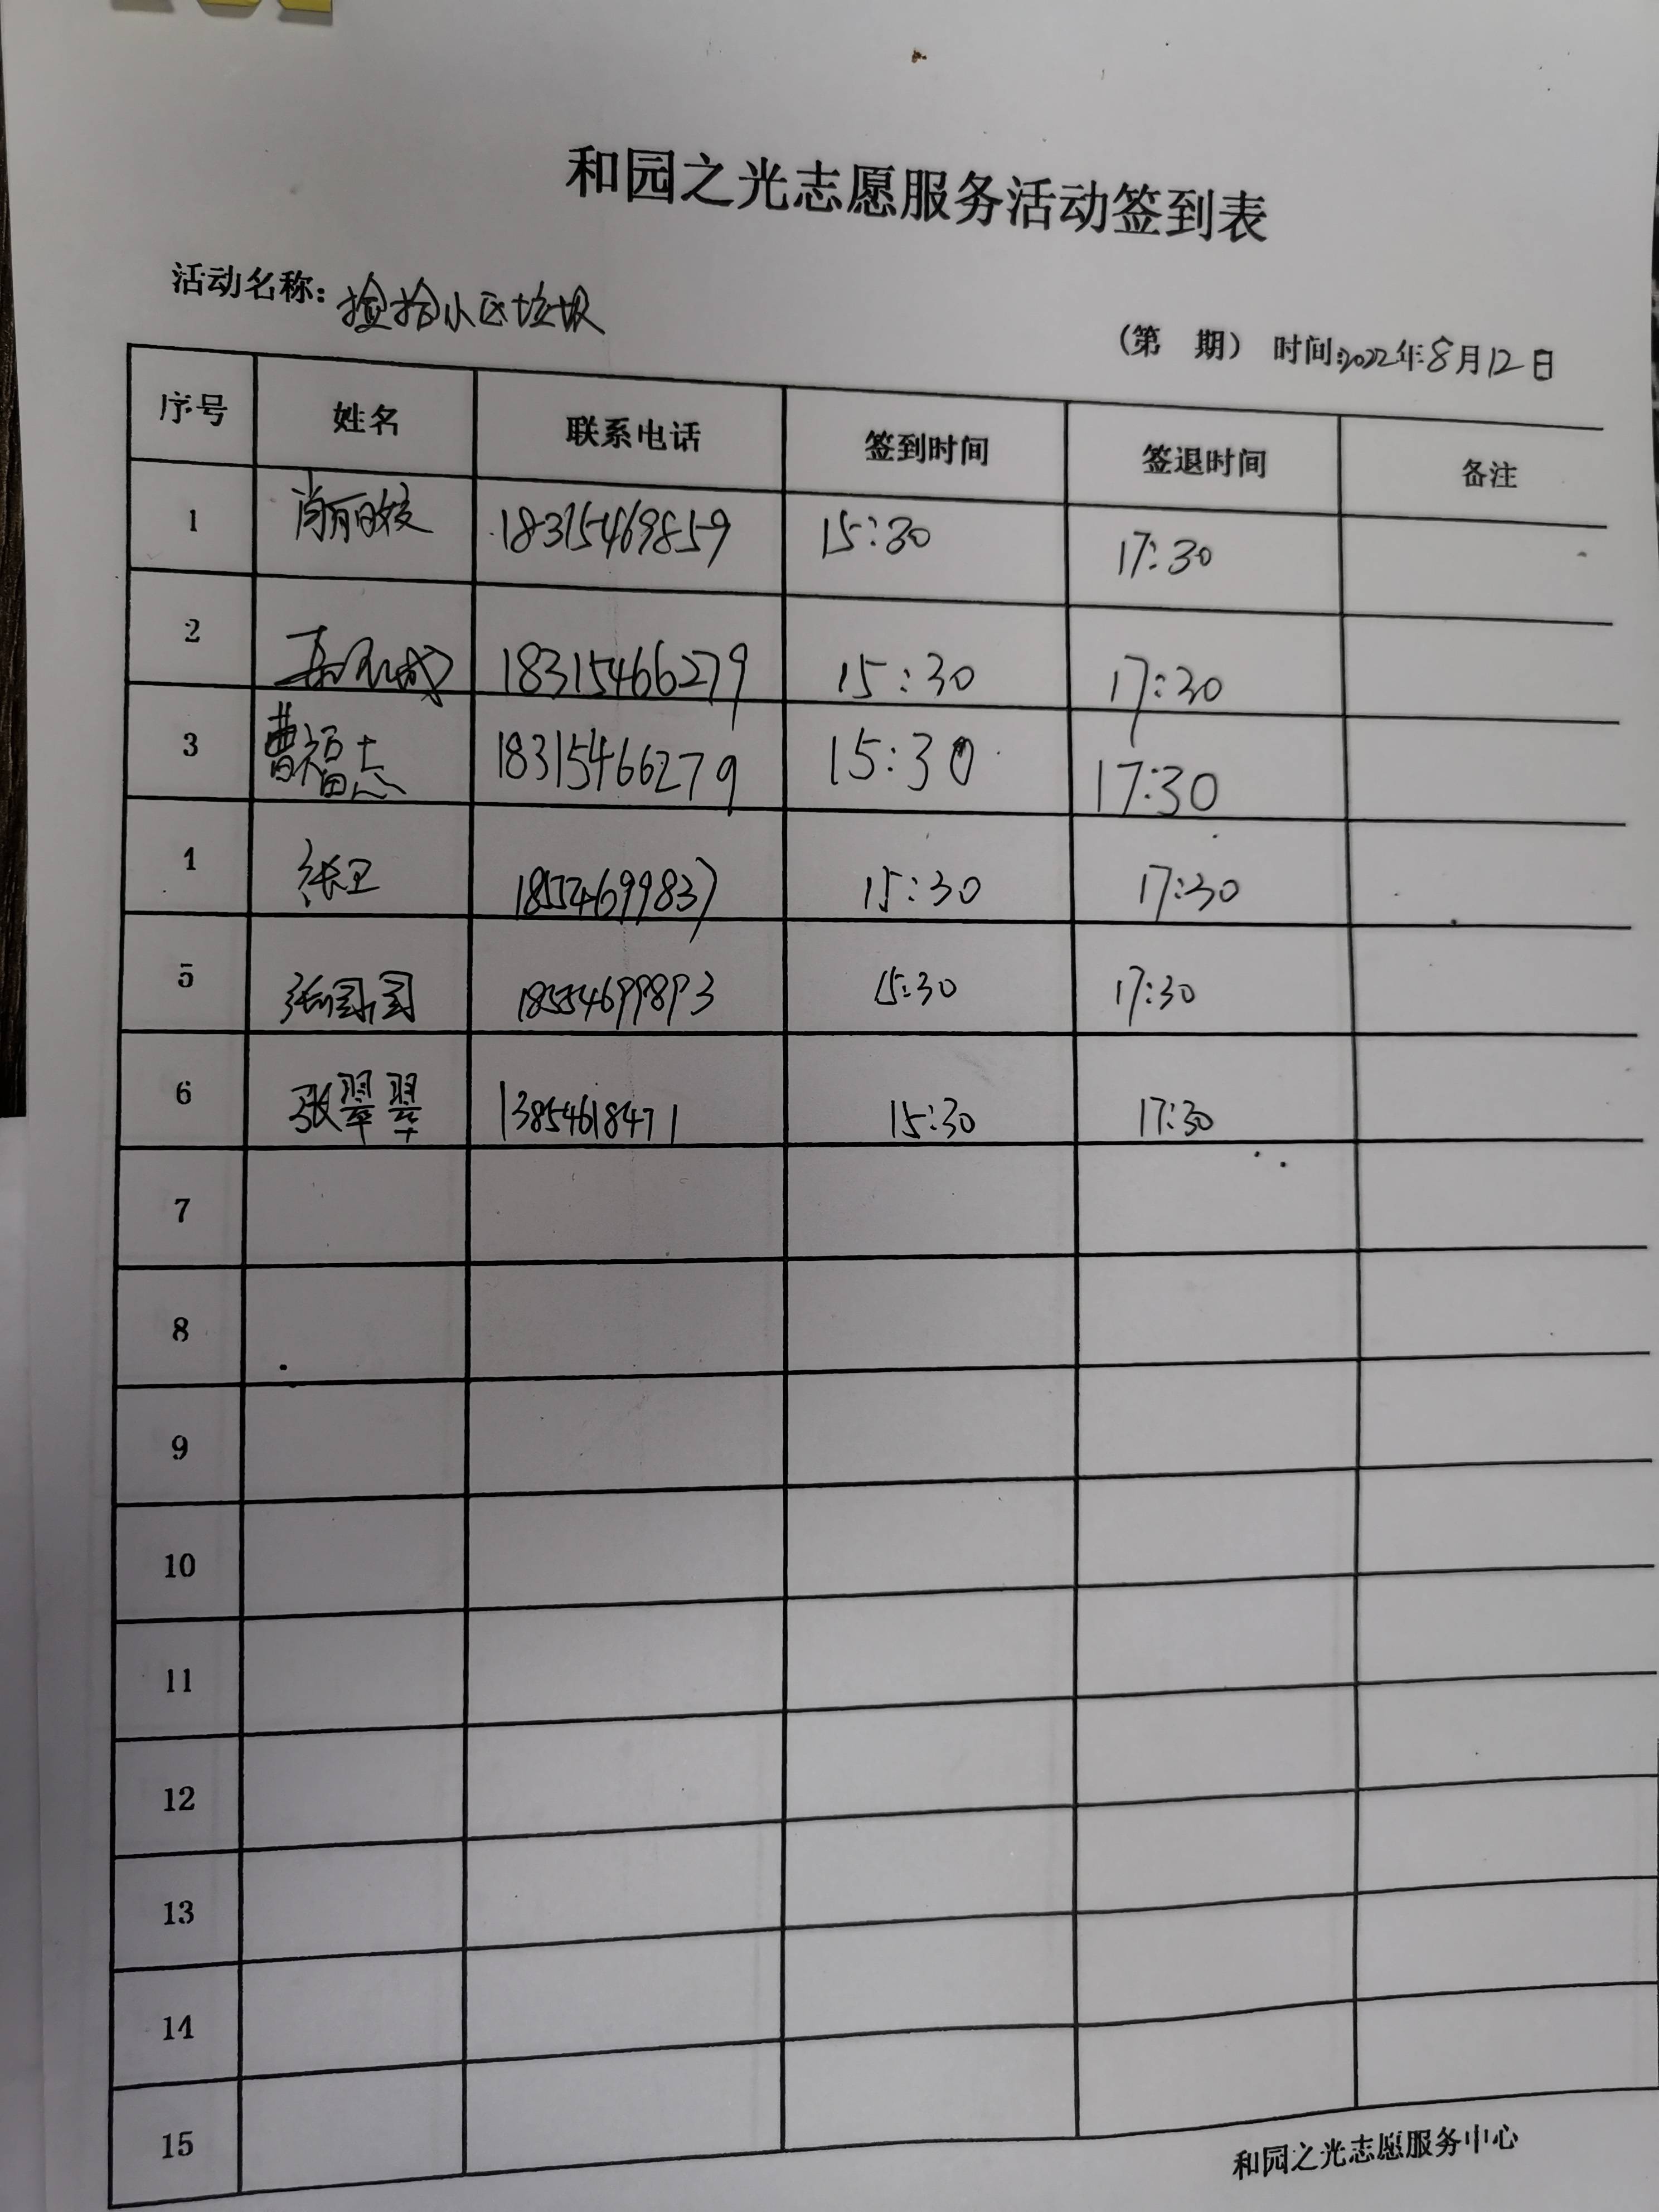 和园之光志愿服务活动签到表
活动名称：捡拾小区垃圾
（第 期） 时间：2022年8月12日
序号 姓名 联系电话 签到时间 签退时间 备注
1 肖丽姣 18315469859 15:30 17:30
2 18315466279 15:30 17:30
3 曹福志 18315466279 15:30 17:30
4 张卫 18554699837 15:30 17:30
5 张园园 18554699893 15:30 17:30
6 张翠翠 13854618471 15:30 17:30
7
8
9
10
11
12
13
14
15
和园之光志愿服务中心